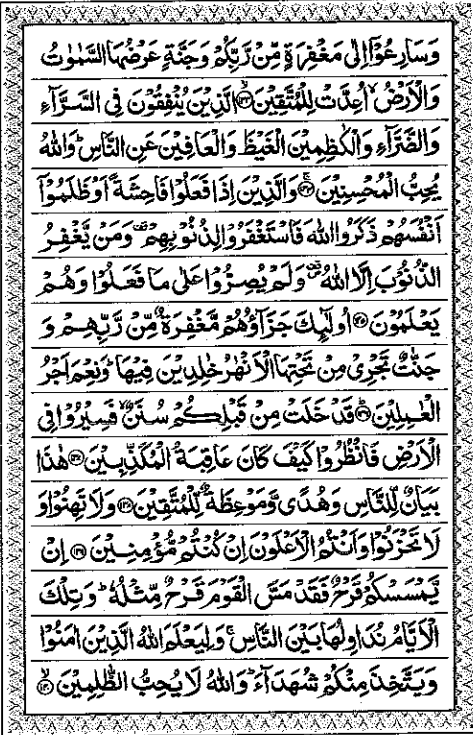 وَسَارِعُوْۤا اِلٰى مَغْفِرَةٍ مِّنْ رَّبِّكُمْ وَجَنَّةٍ عَرْضُهَا السَّمٰوٰتُ
وَالْاَرْضُ ۙ اُعِدَّتْ لِلْمُتَّقِيْنَ ﴿۱۳۳﴾ الَّذِيْنَ يُنْفِقُوْنَ فِى السَّرَّآءِ
وَالضَّرَّآءِ وَالْكٰظِمِيْنَ الْغَيْظَ وَالْعَافِيْنَ عَنِ النَّاسِ ؕ وَاللّٰهُ
يُحِبُّ الْمُحْسِنِيْنَ ﴿۱۳۴﴾ وَالَّذِيْنَ اِذَا فَعَلُوْا فَاحِشَةً اَوْ ظَلَمُوْۤا
اَنْفُسَهُمْ ذَكَرُوا اللّٰهَ فَاسْتَغْفَرُوْا لِذُنُوْبِهِمْ ۪ وَمَنْ يَّغْفِرُ
الذُّنُوْبَ اِلَّا اللّٰهُ ۪ وَلَمْ يُصِرُّوْا عَلٰى مَا فَعَلُوْا وَهُمْ
يَعْلَمُوْنَ ﴿۱۳۵﴾ اُولٰٓئِكَ جَزَآؤُهُمْ مَّغْفِرَةٌ مِّنْ رَّبِّهِمْ وَ
جَنّٰتٌ تَجْرِىْ مِنْ تَحْتِهَا الْاَنْهٰرُ خٰلِدِيْنَ فِيْهَا ؕ وَنِعْمَ اَجْرُ
الْعٰمِلِيْنَ ﴿۱۳۶﴾ قَدْ خَلَتْ مِنْ قَبْلِكُمْ سُنَنٌ ۙ فَسِيْرُوْا فِى
الْاَرْضِ فَانْظُرُوْا كَيْفَ كَانَ عَاقِبَةُ الْمُكَذِّبِيْنَ ﴿۱۳۷﴾ هٰذَا
بَيَانٌ لِّلنَّاسِ وَهُدًى وَّمَوْعِظَةٌ لِّلْمُتَّقِيْنَ ﴿۱۳۸﴾ وَلَا تَهِنُوْا وَ
لَا تَحْزَنُوْا وَاَنْتُمُ الْاَعْلَوْنَ اِنْ كُنْتُمْ مُّؤْمِنِيْنَ ﴿۱۳۹﴾ اِنْ
يَّمْسَسْكُمْ قَرْحٌ فَقَدْ مَسَّ الْقَوْمَ قَرْحٌ مِّثْلُهٗ ؕ وَتِلْكَ
الْاَيَّامُ نُدَاوِلُهَا بَيْنَ النَّاسِ ۚ وَلِيَعْلَمَ اللّٰهُ الَّذِيْنَ اٰمَنُوْا
وَيَتَّخِذَ مِنْكُمْ شُهَدَآءَ ؕ وَاللّٰهُ لَا يُحِبُّ الظّٰلِمِيْنَ ۙ ﴿۱۴۰﴾